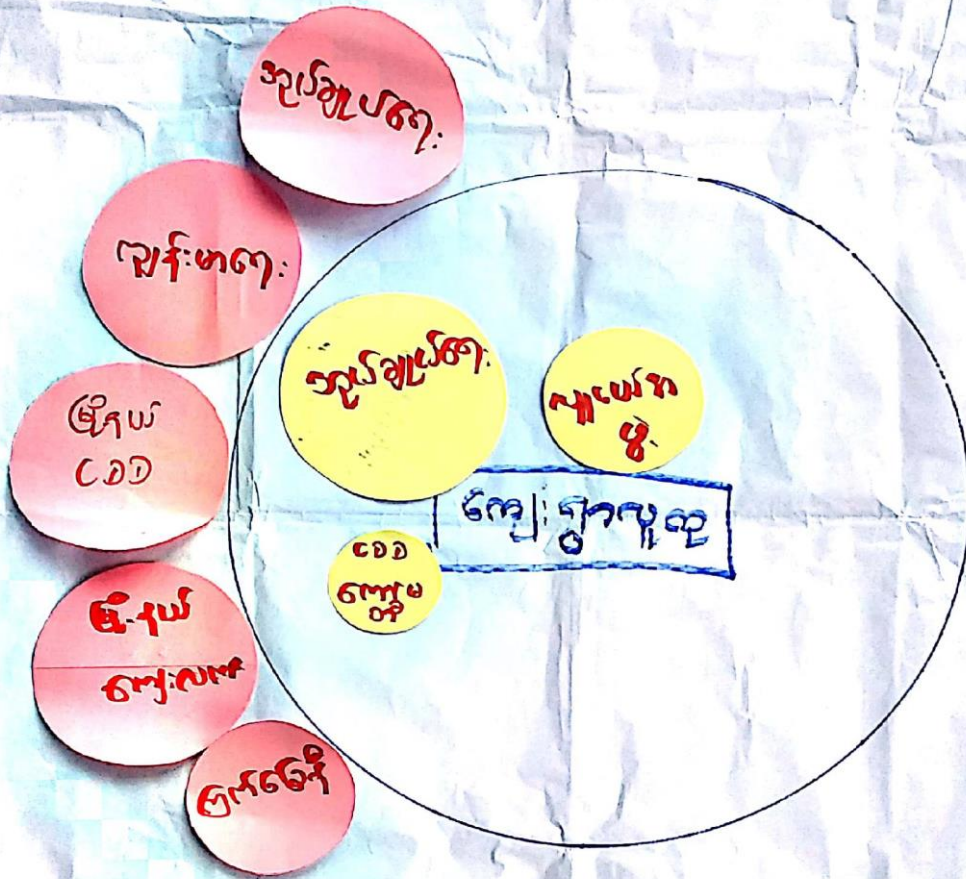 အုပ်ချုပ်ရေး
ကျန်းမာရေး
မြို့နယ်
CDD
မြို့နယ်
ကျေးလက်
ကြက်ခြေနီ
အုပ်ချုပ်ရေး
လူငယ်အ
ဖွဲ့
ကျေးရွာလူထု
CDD
ကော်မ
တီ